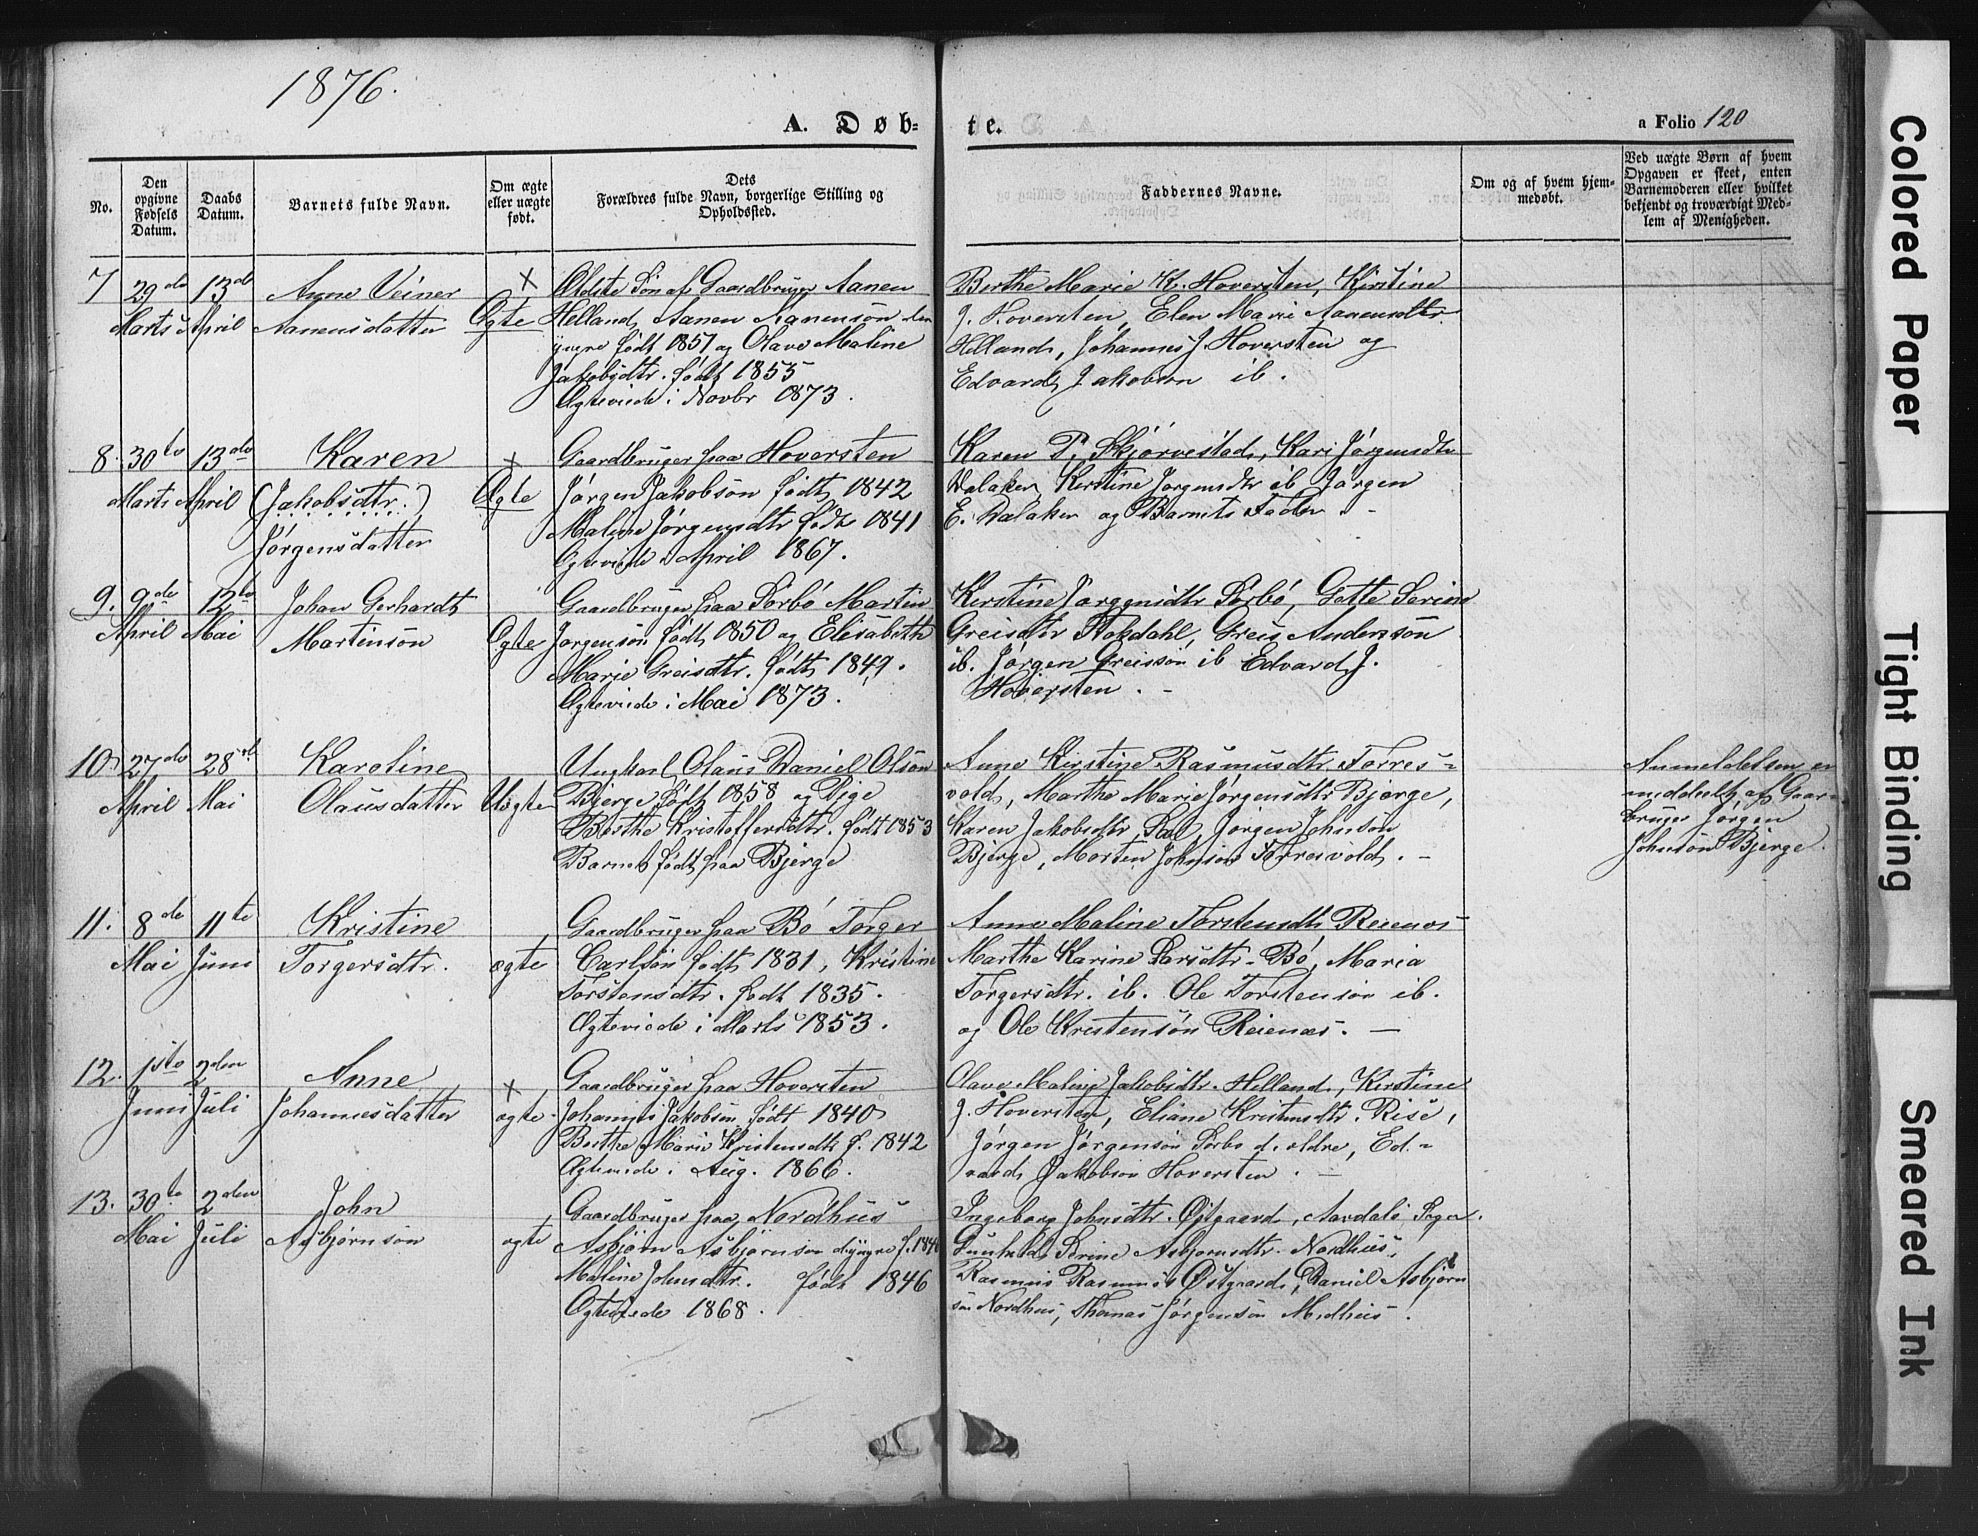 1876.
A. Døb-
te.
a Folio 120
No.
Den opgivne Fødsels Datum.
Daabs Datum.
Barnets fulde Navn.
Om ægte eller uægte født.
Dets Forældres fulde Navn, borgerlige Stilling og Opholdssted.
Faddernes Navne.
Om og af hvem hjemmedøbt.
Ved uægte Børn af hvem Opgaven er skeet, enten Barnemoderen eller hvilket bekjendt og troværdigt Medlem af Menigheden.
7 29de Marts 13de April
Anne Veiner
Aanensdatter
×
Ægte
Ældste Søn af Gaardbruger Aanen
Helland, Aanen Aanensøn den
yngre født 1851 og Olave Maline
Jakobsdtr. født 1855
Ægteviede i Novbr 1873.
Berthe Marie K. Hoversten, Kirstine
J. Hoversten, Elen Marie Aanensdtr
Helland, Johannes J. Hoversten og
Edvard Jakobson ib.
8. 30te Marts 13de April
Karen
(Jakobsdtr.)
Jørgensdatter
×
Ægte
Gaardbruger paa Hoversten
Jørgen Jakobsøn født 1842
Maline Jørgensdtr født 1841
Ægteviede i April 1867.
Karen P. Skjørvestad, Kari Jørgensdtr
Dalaker, Kirstine Jørgensdtr ib Jørgen
E. Dalaker og Barnets Fader. -
9. 9de April 12te Mai
Johan Gerhardt
Martinsøn
Ægte
Gaardbruger paa Sørbø Martin
Jørgensøn født 1850 og Elisabeth
Marie Greisdtr. født 1849.
Ægteviede i Mai 1873.
Kirstine Jørgensdtr Sørbø, Gette Serine
Greisdtr Hokdahl, Greis Andersøn
ib. Jørgen Greissøn ib Edvard J.
Hoversten. -
10. 27de April 28de Mai
Karoline
Olausdatter
Uægte
Ungkarl Olaus Daniel Olsøn
Bjerge født 1858 og Pige
Berthe Kristoffersdtr. født 1853
Barnet født paa Bjerge
Anne Kirstine Rasmusdtr Torres-
vold, Marthe Marie Jørgensdtr Bjerge,
Karen Jakobsdtr Sal, Jørgen Johnsøn
Bjerge, Morten Johnsøn Torresvold. -
Anmeldelsen er
meddelt af Gaard-
bruger Jørgen
Johnsøn Bjerge.
11. 8de Mai 11te Juni
Kristine
Torgersdtr.
ægte
Gaardbruger paa Bø Torger
Carlsøn født 1831, Kristine
Torstensdtr. født 1835.
Ægteviede i Marts 1853.
Anne Maline Torstensdtr Reienæs
Marthe Karine Larsdtr. Bø, Maria
Torgersdtr. ib. Ole Torstensøn ib.
og Ole Kristensøn Reienæs. -
12. 1ste Juni 2den Juli
Anne
Johannesdatter
×
ægte
Gaardbruger paa Hoversten
Johannes Jakobsøn født 1840
Berthe Marie Kristensdtr f. 1842
Ægteviede i Aug. 1866.
Olave Maline Jakobsdtr. Helland, Kirstine
J. Hoversten, Eliane Kristensdtr. Rise,
Jørgen Jørgensøn Sørbø d. ældre, Ed-
vard Jakobsøn Hoversten. -
13. 30te Mai 2den Juli
John
Asbjørnsøn
ægte
Gaardbruger paa Nordhus
Asbjørn Asbjørnsøn d. yngre f. 1840
Maline Johnsdtr. født 1846
Ægteviede 1868.
Ingeborg Johnsdtr. Østgaard, Aardals Sogn.
Gunhild Serine Asbjørnsdtr. Nordhus,
Rasmus Rasmus Østgaard, Daniel Asbjørn
søn Nordhus, Thomas Jørgensøn Melhus.
Colored Paper
Tight Binding
Smeared Ink